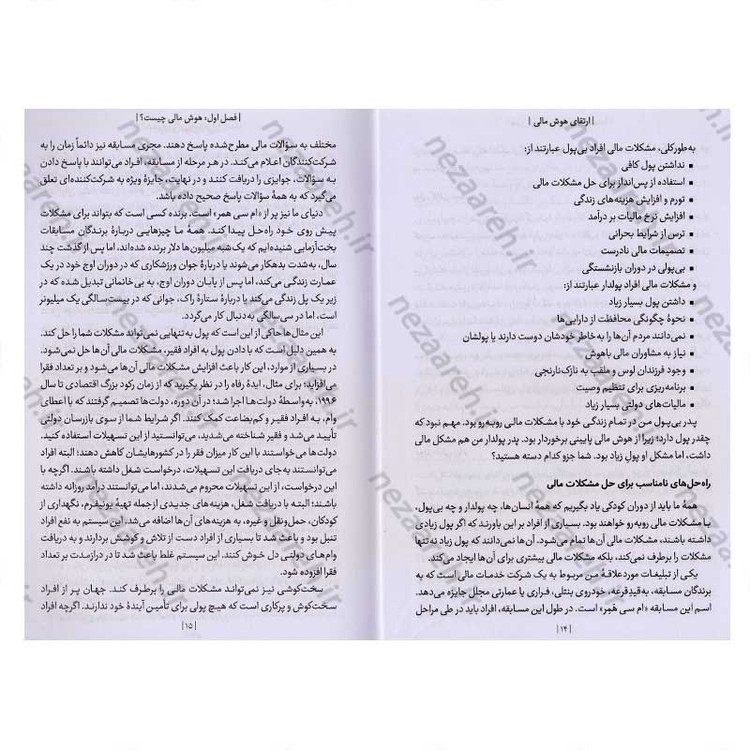 | ارتقای هوش مالی |
به‌طورکلی، مشکلات مالی افراد بی‌پول عبارتند از:
▪ نداشتن پول کافی
▪ استفاده از پس‌انداز برای حل مشکلات مالی
▪ تورم و افزایش هزینه‌های زندگی
▪ افزایش نرخ مالیات بر درآمد
▪ ترس از شرایط بحرانی
▪ تصمیمات مالی نادرست
▪ بی‌پولی در دوران بازنشستگی
و مشکلات مالی افراد پولدار عبارتند از:
▪ داشتن پول بسیار زیاد
▪ نحوهٔ چگونگی محافظت از دارایی‌ها
▪ نمی‌دانند مردم آن‌ها را به‌خاطر خودشان دوست دارند یا پولشان
▪ نیاز به مشاوران مالی باهوش
▪ وجود فرزندان لوس و ملقب به نازک‌نارنجی
▪ برنامه‌ریزی برای تنظیم وصیت
▪ مالیات‌های دولتی بسیار زیاد
پدر بی‌پول من در تمام زندگی خود با مشکلات مالی روبه‌رو بود. مهم نبود که
چقدر پول دارد؛ زیرا از هوش مالی پایینی برخوردار بود. پدر پولدار من هم مشکل مالی
داشت، اما مشکل او پول زیاد بود. شما جزو کدام دسته هستید؟
راه‌حل‌های نامناسب برای حل مشکلات مالی
همهٔ ما باید از دوران کودکی یاد بگیریم که همهٔ انسان‌ها، چه پولدار و چه بی‌پول،
با مشکلات مالی روبه‌رو خواهند بود. بسیاری از افراد بر این باورند که اگر پول زیادی
داشته باشند، مشکلات مالی آن‌ها تمام می‌شود. آن‌ها نمی‌دانند که پول زیاد نه‌تنها
مشکلات را برطرف نمی‌کند، بلکه مشکلات مالی بیشتری برای آن‌ها ایجاد می‌کند.
یکی از تبلیغات موردعلاقهٔ من مربوط به یک شرکت خدمات مالی است که به
برندگان مسابقه، به‌قیدقرعه، خودروی بنتلی، فراری یا عمارتی مجلل جایزه می‌دهد.
اسم این مسابقه «ام سی هَمِر» است. در طول این مسابقه، افراد باید در طی مراحل
| ۱۴ |
| فصل اول: هوش مالی چیست؟ |
مختلف به سؤالات مالی مطرح‌شده پاسخ دهند. مجری مسابقه نیز دائماً زمان را به
شرکت‌کنندگان اعلام می‌کند. در هر مرحله از مسابقه، افراد می‌توانند با پاسخ دادن
به سؤالات، جوایزی را دریافت کنند و در نهایت، جایزهٔ ویژه به شرکت‌کننده‌ای تعلق
می‌گیرد که به همهٔ سؤالات پاسخ صحیح داده باشد.
دنیای ما نیز پر از «ام سی همر» است. برنده کسی است که بتواند برای مشکلات
پیش روی خود راه‌حل پیدا کند. همهٔ ما چیزهایی دربارهٔ برندگان مسابقات
بخت‌آزمایی شنیده‌ایم که یک‌شبه میلیون‌ها دلار برنده شده‌اند، اما پس از گذشت چند
سال، به‌شدت بدهکار می‌شوند یا دربارهٔ جوان ورزشکاری که در دوران اوج خود در یک
عمارت زندگی می‌کند، اما پس از پایان دوران اوج، به بی‌خانمانی تبدیل شده که در
زیر یک پل زندگی می‌کند یا دربارهٔ ستارهٔ راک، جوانی که در بیست‌سالگی یک میلیونر
است، اما در سی‌سالگی به‌دنبال کار می‌گردد.
این مثال‌ها حاکی از این است که پول به‌تنهایی نمی‌تواند مشکلات شما را حل کند.
به همین دلیل است که با دادن پول به افراد فقیر، مشکلات مالی آن‌ها حل نمی‌شود.
در بسیاری از موارد، این کار باعث افزایش مشکلات مالی آن‌ها می‌شود و بر تعداد فقرا
می‌افزاید؛ برای مثال، ایدهٔ رفاه را در نظر بگیرید که از زمان رکود بزرگ اقتصادی تا سال
۱۹۹۶، به‌واسطهٔ دولت‌ها اجرا شد؛ در آن دوره، دولت‌ها تصمیم گرفتند که با اعطای
وام، به افراد فقیر و کم‌بضاعت کمک کنند. اگر شرایط شما از سوی بازرسان دولتی
تأیید می‌شد و فقیر شناخته می‌شدید، می‌توانستید از این تسهیلات استفاده کنید.
دولت‌ها می‌خواستند با این کار میزان فقر را در کشورهایشان کاهش دهند؛ البته افراد
می‌توانستند به‌جای دریافت این تسهیلات، درخواست شغل داشته باشند. اگرچه با
این درخواست، از این تسهیلات محروم می‌شدند، اما می‌توانستند درآمد روزانه داشته
باشند؛ البته با دریافت شغل، هزینه‌های جدیدی ازجمله تهیهٔ یونیفرم، نگهداری از
کودکان، حمل‌ونقل و غیره، به هزینه‌های آن‌ها اضافه می‌شد. این سیستم به نفع افراد
تنبل بود و باعث شد تا بسیاری از افراد دست از تلاش و کوشش بردارند و به دریافت
وام‌های دولتی دل خوش کنند. این سیستم غلط باعث شد تا در درازمدت بر تعداد
فقرا افزوده شود.
سخت‌کوشی نیز نمی‌تواند مشکلات مالی را برطرف کند. جهان پر از افراد
سخت‌کوش و پرکاری است که هیچ پولی برای تأمین آیندهٔ خود ندارند. اگرچه افراد
| ۱۵ |
nezaareh.ir